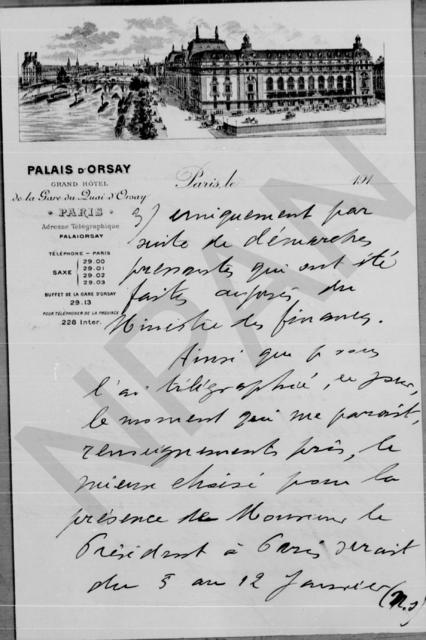 PALAIS D'ORSAY
GRAND HÔTEL
de la Gare du Quai d'Orsay
PARIS
Adresse Télégraphique
PALAIORSAY
TÉLÉPHONE - PARIS
SAXE
29.00
29.01
29.02
29.03
BUFFET DE LA GARE D'ORSAY
29.13
POUR TÉLÉPHONER DE LA PROVINCE
228 Inter.
Paris, le 191
3) uniquement par
suite de démarches
pressantes qui ont été
faites auprès du
Ministre des finances.
Ainsi que je vous
l'ai télégraphié, ce jour,
le moment qui me paraît,
renseignements pris, le
mieux choisi pour la
présence de Monsieur le
Président à Paris serait
du 5 au 12 Janvier (n.s)
NPAN